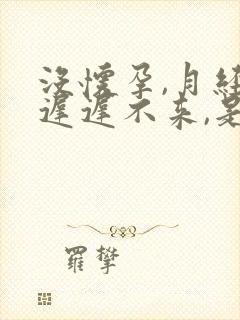 没懷孕,月經
遲遲不來,是
羅攀